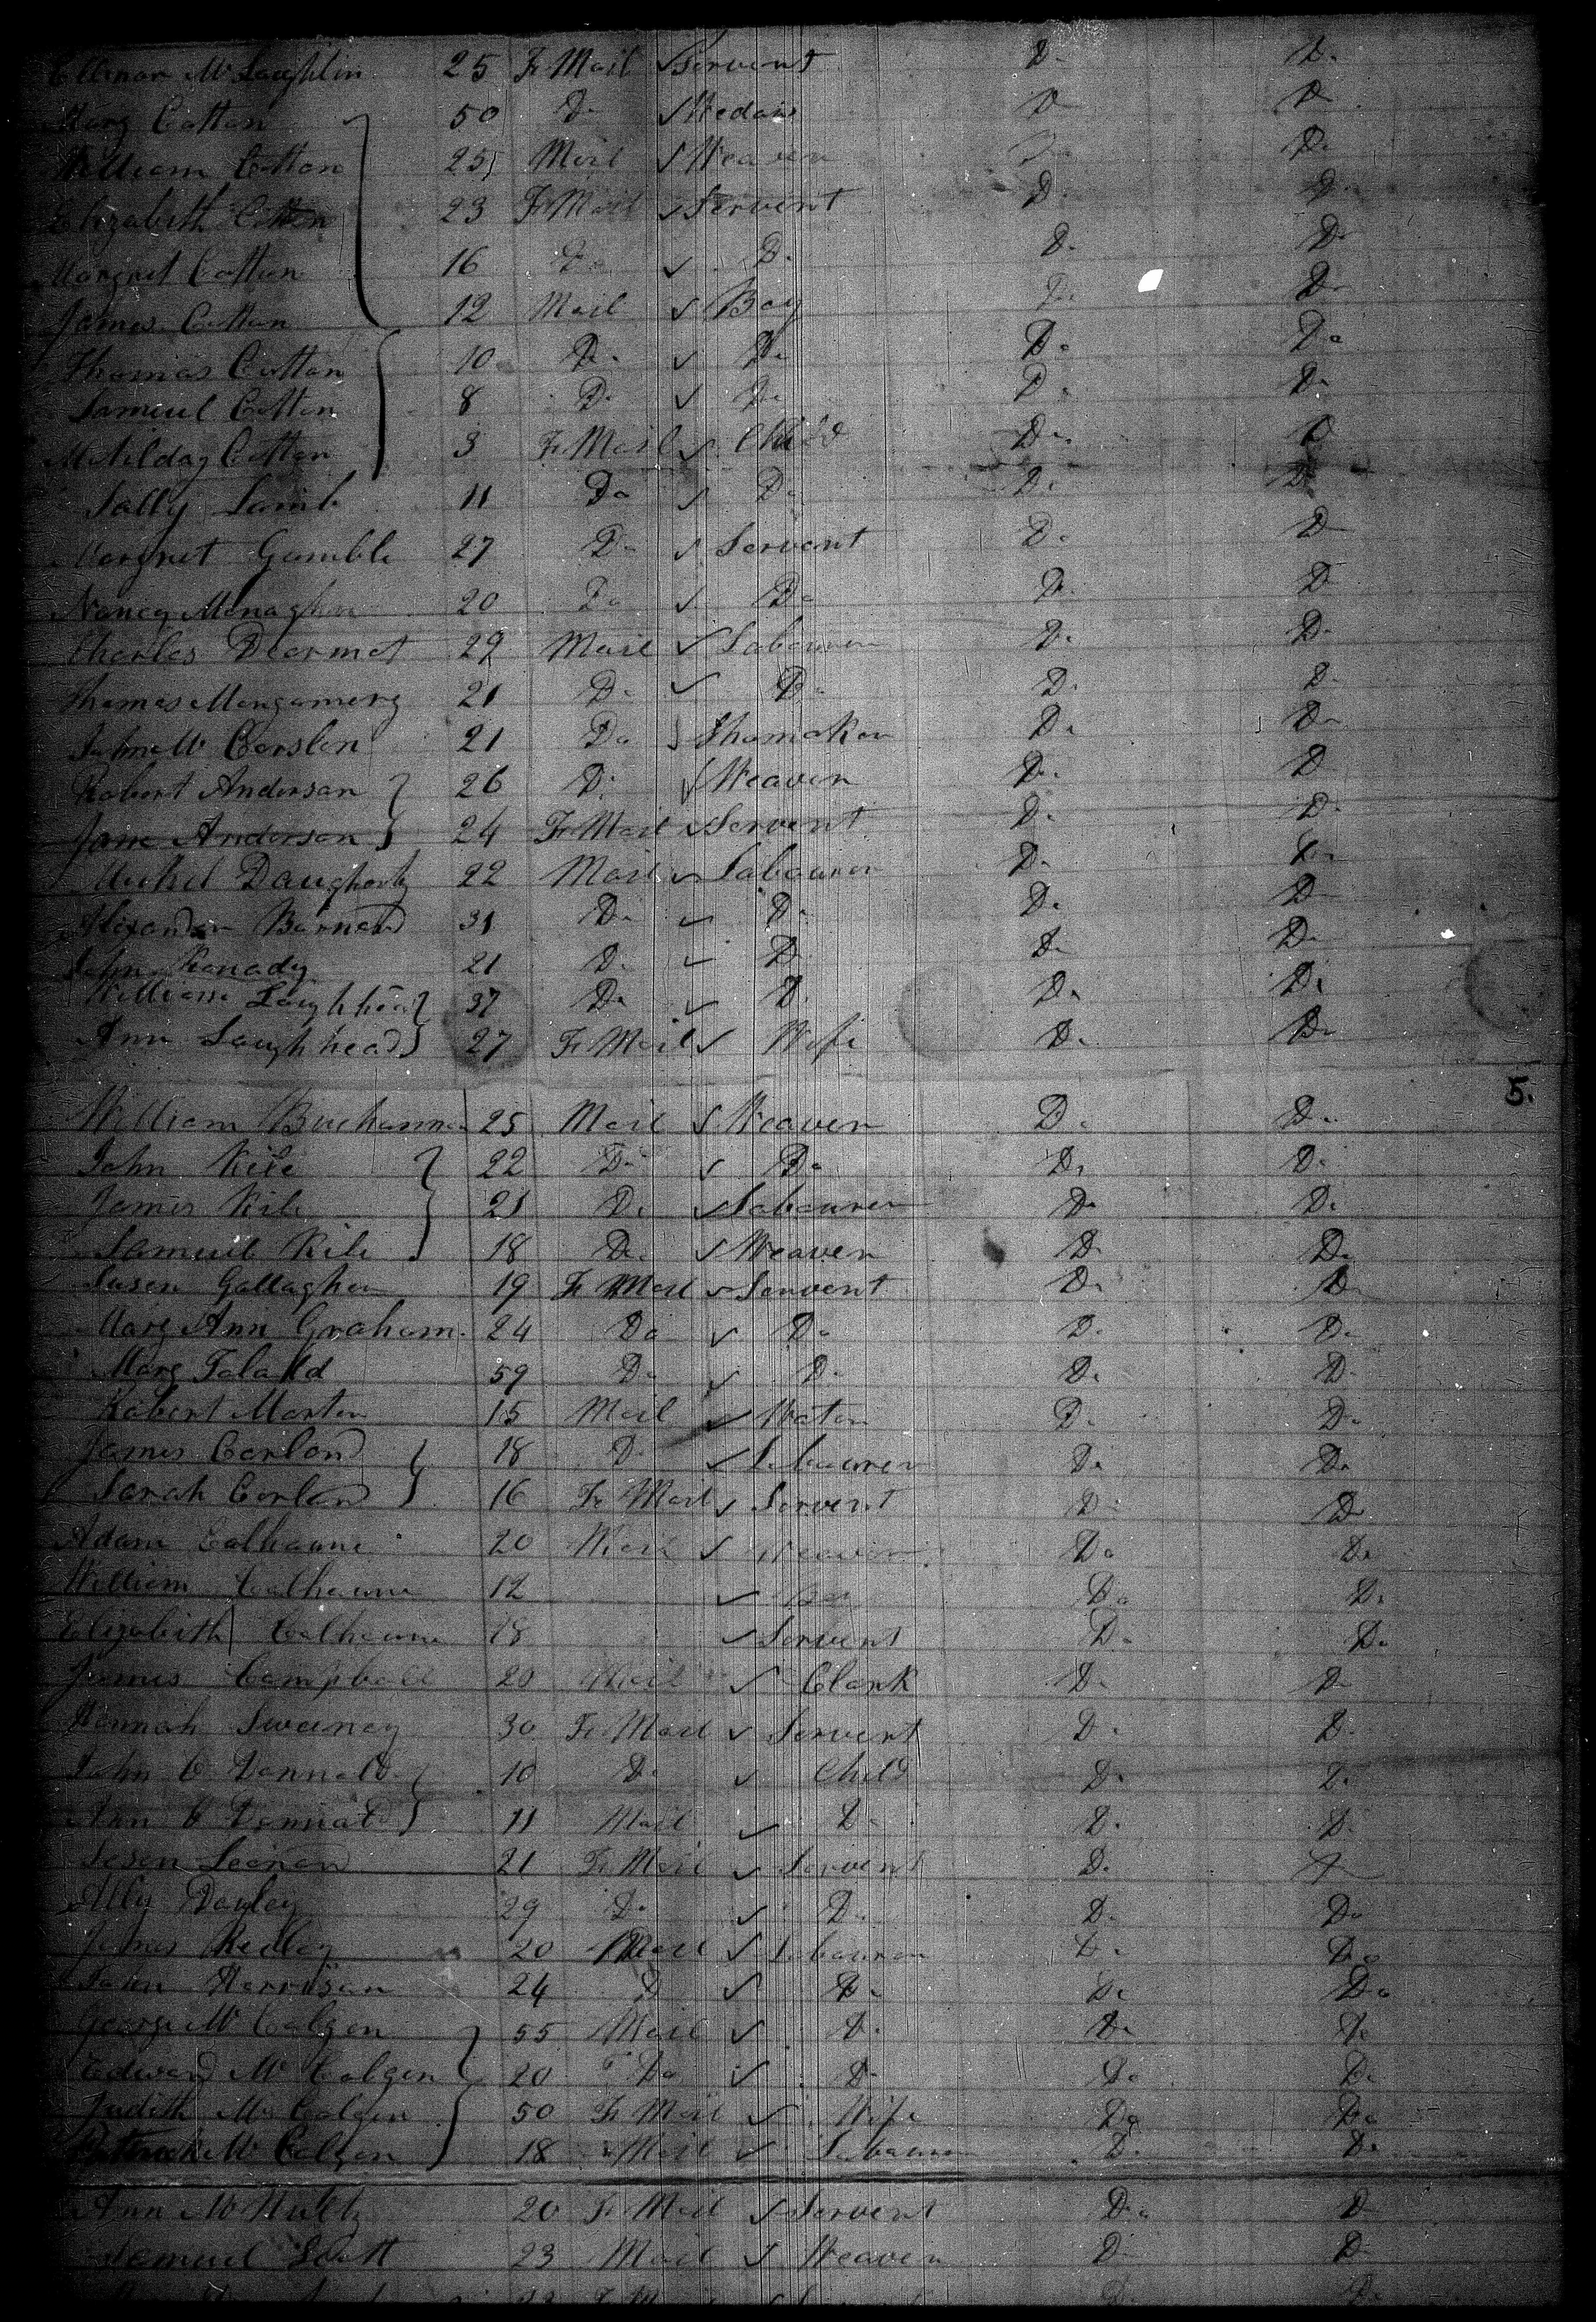 Ellenor Mc Laughlin 25 Fe Mail ✓ Servent D. D.
Mary Cotton 50 Do ✓ Wedow D D
William Cotton 25 Mail ✓ Weaver Do Do
Elizabeth Cotton 23 Fe Mail ✓ Servent D. D.
Margret Cotton 16 Do ✓ D. D. D.
James Cotton 12 Mail ✓ Boy Do Do
Thomas Cotton 10 Do ✓ Do Do Do
Samuel Cotton 8 Do ✓ Do Do Do
Matilday Cotton 3 Fe Mail ✓ Child Do D
Sally Lamb 11 Do ✓ Do Do D
Margret Gamble 27 Do ✓ Servent Do D
Nancy Monaghan 20 Do ✓ Do D. D
Charles Dearmot 29 Mail ✓ Labourer Do Do
Thomas Mongomery 21 Do ✓ Do D. D.
John Mc Corslen 21 Do Shomaker Do Do
Robert Anderson 26 D. ✓ Weaver Do D
Jane Anderson 24 Fe Mail ✓ Servent D. D.
Michel Daugherty 22 Mail ✓ Labourer Do Do
Alixander Barnard 31 Do ✓ Do Do D
John Kanady 21 Do ✓ D. Do Do
William Laughhead 37 Do ✓ D. Do Do
Ann Laughhead 27 Fe Mail ✓ Wife Do Do
5.
William Buchannan 25 Mail ✓ Weaver Do Do
John Kile 22 Do ✓ Do Do Do
James Kile 21 Do ✓ Labourer Do Do
Samuel Kile 18 Do ✓ Weaver Do Do
Susen Gallagher 19 Fe Mail ✓ Servent Do D
Mary Ann Graham 24 Do ✓ Do D. Do
Mary 59 Do ✓ Do Do D
Robert Morten 15 Mail ✓ Do Do
James Corland 18 Do ✓ Labourer Do Do
Sarah Corland 16 Fe Mail ✓ Servent Do Do
Adam Calhoune 20 Mail ✓ Weaver Do Do
William Calhoune 12 ✓ Boy Do Do
Elizabeith Calhoune 18 ✓ Servent Do Do
James Campball 20 Mail ✓ Clark Do D
Hannah Sweeney 30 Fe Mail ✓ Servent Do D.
John O Donnald 10 Do ✓ Child Do D.
Ann O Donnald 11 Mail ✓ Do D. D.
21 Fe Mail ✓ Servent D.
Ally Dayley 29 Do ✓ Do Do Do
James 20 Mail ✓ Labourer Do Do
John Harrison 24 D ✓ Do Do Do
George Mc Colgen 55 Mail ✓ D. Do Do
Edward Mc Colgen 20 Do ✓ Do Do Do
Judith Mc Colgen 50 Fe Mail ✓ Wife Do Do
Pattrick Mc Colgen 18 Mail ✓ Labourer D. Do
Ann Mc 20 Fe Mail ✓ Servent Do D
Samuel Scott 23 Mail ✓ Weaver D D